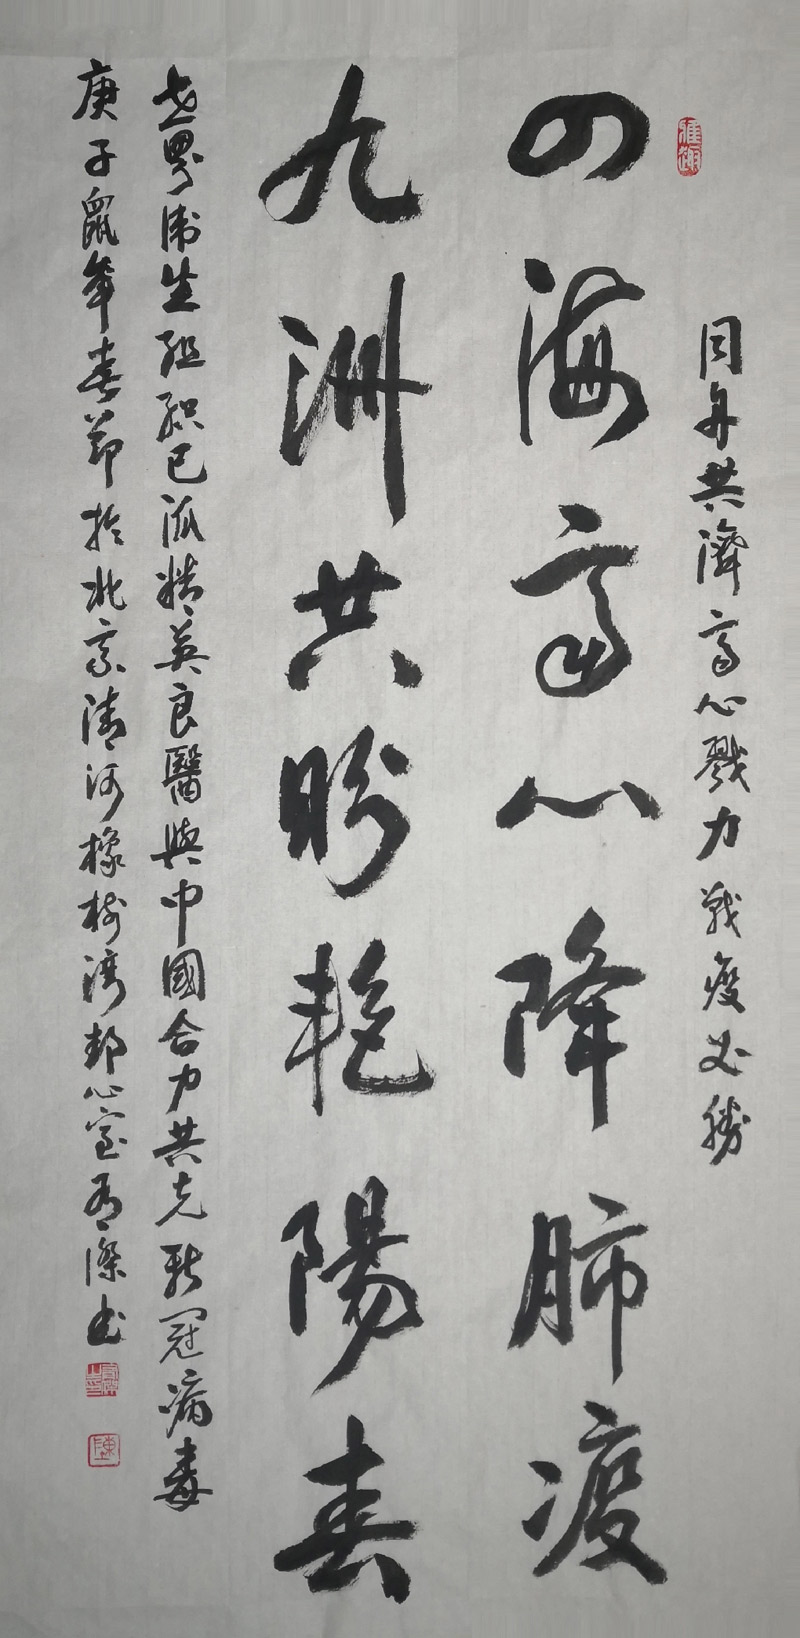 同舟共濟齊心戮力戰疫必勝
四海齊心降肺疫
九洲共盼艳陽春
世界衛生組織已派精英良醫與中國合力共克新冠病毒
庚子鼠年春節於北京清河橡樹灣心室書